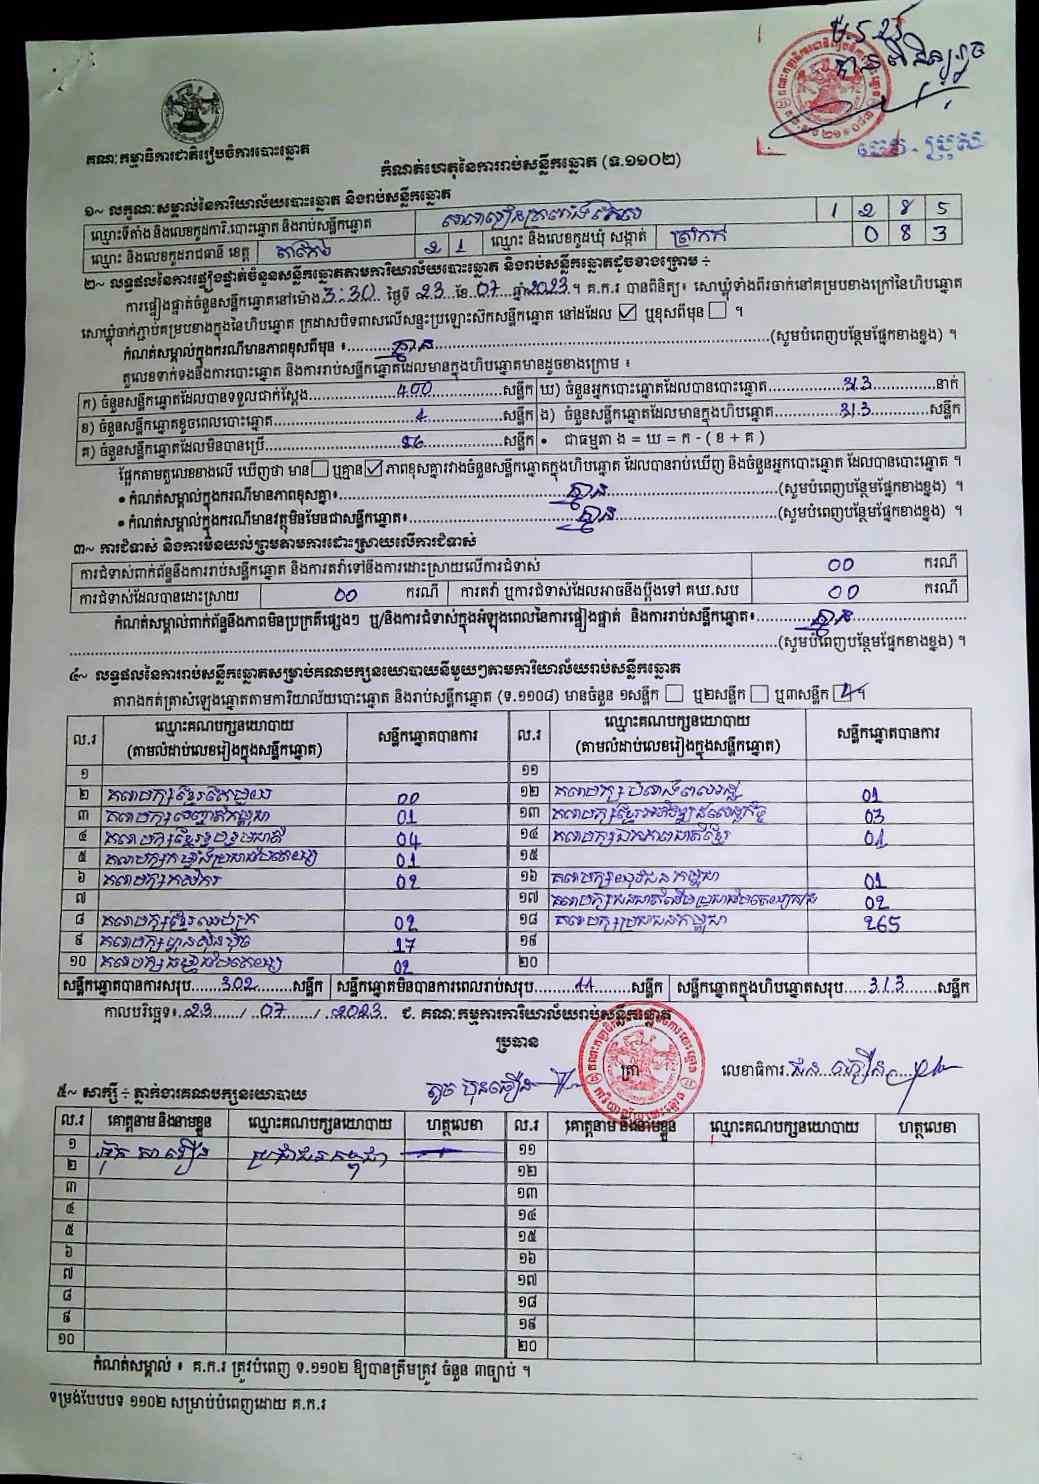 គណៈកម្មាធិការជាតិរៀបចំការបោះឆ្នោត
កំណត់ហេតុនៃការរាប់សន្លឹកឆ្នោត (ទ.១១០២)
១~ លក្ខណៈសម្គាល់នៃការិយាល័យបោះឆ្នោត និងរាប់សន្លឹកឆ្នោត
ឈ្មោះទីតាំង និងលេខកូដការិ.បោះឆ្នោត និងរាប់សន្លឹកឆ្នោត 1 2 8 5
ឈ្មោះ និងលេខកូដរាជធានី ខេត្ត តាកែវ 2 1 ឈ្មោះ និងលេខកូដឃុំ សង្កាត់ 0 8 3
២~ លទ្ធផលនៃការផ្ទៀងផ្ទាត់ចំនួនសន្លឹកឆ្នោតតាមការិយាល័យបោះឆ្នោត និងរាប់សន្លឹកឆ្នោតដូចខាងក្រោម ÷
ការផ្ទៀងផ្ទាត់ចំនួនសន្លឹកឆ្នោតនៅម៉ោង 3:30 ថ្ងៃទី 23 ខែ 07 ឆ្នាំ 2023 ។ គ.ក.រ បានពិនិត្យ៖ សោឃ្លុំទាំងពីរចាក់នៅគម្របខាងក្រៅនៃហិបឆ្នោត
សោឃ្លុំចាក់ភ្ជាប់គម្របខាងក្នុងនៃហិបឆ្នោត ក្រដាសបិទពាសលើសន្ទះប្រឡោះស៊កសន្លឹកឆ្នោត នៅដដែល ☑ ឬខុសពីមុន ☐ ។
កំណត់សម្គាល់ក្នុងករណីមានភាពខុសពីមុន ៖ គ្មាន (សូមបំពេញបន្ថែមផ្នែកខាងខ្នង) ។
តួលេខទាក់ទងនឹងការបោះឆ្នោត និងការរាប់សន្លឹកឆ្នោតដែលមានក្នុងហិបឆ្នោតមានដូចខាងក្រោម ៖
ក) ចំនួនសន្លឹកឆ្នោតដែលបានទទួលជាក់ស្តែង 400 សន្លឹក ឃ) ចំនួនអ្នកបោះឆ្នោតដែលបានបោះឆ្នោត 313 នាក់
ខ) ចំនួនសន្លឹកឆ្នោតខូចពេលបោះឆ្នោត 1 សន្លឹក ង) ចំនួនសន្លឹកឆ្នោតដែលមានក្នុងហិបឆ្នោត 313 សន្លឹក
គ) ចំនួនសន្លឹកឆ្នោតដែលមិនបានប្រើ 86 សន្លឹក • ជាធម្មតា ង = ឃ = ក - ( ខ + គ )
ផ្អែកតាមតួលេខខាងលើ ឃើញថា មាន ☐ ឬគ្មាន ☑ ភាពខុសគ្នារវាងចំនួនសន្លឹកឆ្នោតក្នុងហិបឆ្នោត ដែលបានរាប់ឃើញ និងចំនួនអ្នកបោះឆ្នោត ដែលបានបោះឆ្នោត ។
• កំណត់សម្គាល់ក្នុងករណីមានភាពខុសគ្នា៖ គ្មាន (សូមបំពេញបន្ថែមផ្នែកខាងខ្នង) ។
• កំណត់សម្គាល់ក្នុងករណីមានវត្ថុមិនមែនជាសន្លឹកឆ្នោត៖ គ្មាន (សូមបំពេញបន្ថែមផ្នែកខាងខ្នង) ។
៣~ ការជំទាស់ និងការមិនយល់ព្រមតាមការដោះស្រាយលើការជំទាស់
ការជំទាស់ពាក់ព័ន្ធនឹងការរាប់សន្លឹកឆ្នោត និងការតវ៉ាទៅនឹងការដោះស្រាយលើការជំទាស់ 00 ករណី
ការជំទាស់ដែលបានដោះស្រាយ 00 ករណី ការតវ៉ា ឬការជំទាស់ដែលអាចនឹងប្តឹងទៅ គឃ.សប 00 ករណី
កំណត់សម្គាល់ពាក់ព័ន្ធនឹងភាពមិនប្រក្រតីផ្សេងៗ ឬ/និងការជំទាស់ក្នុងអំឡុងពេលនៃការផ្ទៀងផ្ទាត់ និងការរាប់សន្លឹកឆ្នោត៖ គ្មាន
(សូមបំពេញបន្ថែមផ្នែកខាងខ្នង) ។
៤~ លទ្ធផលនៃការរាប់សន្លឹកឆ្នោតសម្រាប់គណបក្សនយោបាយនីមួយៗតាមការិយាល័យរាប់សន្លឹកឆ្នោត
តារាងកត់ត្រាសំឡេងឆ្នោតតាមការិយាល័យបោះឆ្នោត និងរាប់សន្លឹកឆ្នោត (ទ.១១០៨) មានចំនួន ១សន្លឹក ☐ ឬ២សន្លឹក ☐ ឬ៣សន្លឹក ។
ល.រ ឈ្មោះគណបក្សនយោបាយ (តាមលំដាប់លេខរៀងក្នុងសន្លឹកឆ្នោត) សន្លឹកឆ្នោតបានការ ល.រ ឈ្មោះគណបក្សនយោបាយ (តាមលំដាប់លេខរៀងក្នុងសន្លឹកឆ្នោត) សន្លឹកឆ្នោតបានការ
១ ១១
២ គណបក្សខ្មែរតែមួយ 00 ១២ 01
៣ គណបក្សបេញ្ចាតិកម្ពុជា 01 ១៣ គណបក្សខ្មែរអភិវឌ្ឍន៍សេដ្ឋកិច្ច 03
៤ គណបក្សខ្មែររួបរួមជាតិ 04 ១៤ គណបក្សឯកភាពជាតិខ្មែរ 01
៥ គណបក្សកម្លាំងប្រជាធិបតេយ្យ 01 ១៥
៦ គណបក្សកសិករ 02 ១៦ គណបក្សយុវជនកម្ពុជា 01
៧ ១៧ 02
៨ គណបក្សខ្មែរឈប់ក្រ 02 ១៨ គណបក្សប្រជាជនកម្ពុជា 265
៩ គណបក្សហ្វ៊ុនស៊ិនប៉ិច 17 ១៩
១០ គណបក្សធម្មាធិបតេយ្យ 02 ២០
សន្លឹកឆ្នោតបានការសរុប 302 សន្លឹក សន្លឹកឆ្នោតមិនបានការពេលរាប់សរុប 11 សន្លឹក សន្លឹកឆ្នោតក្នុងហិបឆ្នោតសរុប 313 សន្លឹក
កាលបរិច្ឆេទ៖ 23 / 07 / 2023 ជ. គណៈកម្មការការិយាល័យរាប់សន្លឹកឆ្នោត
ប្រធាន ត្រា លេខាធិការ
៥~ សាក្សី ÷ ភ្នាក់ងារគណបក្សនយោបាយ
ល.រ គោត្តនាម និងនាមខ្លួន ឈ្មោះគណបក្សនយោបាយ ហត្ថលេខា ល.រ គោត្តនាម និងនាមខ្លួន ឈ្មោះគណបក្សនយោបាយ ហត្ថលេខា
១ ប្រជាជនកម្ពុជា ១១
២ ១២
៣ ១៣
៤ ១៤
៥ ១៥
៦ ១៦
៧ ១៧
៨ ១៨
៩ ១៩
១០ ២០
កំណត់សម្គាល់ ៖ គ.ក.រ ត្រូវបំពេញ ទ.១១០២ ឱ្យបានត្រឹមត្រូវ ចំនួន ៣ច្បាប់ ។
ទម្រង់បែបបទ ១១០២ សម្រាប់បំពេញដោយ គ.ក.រ